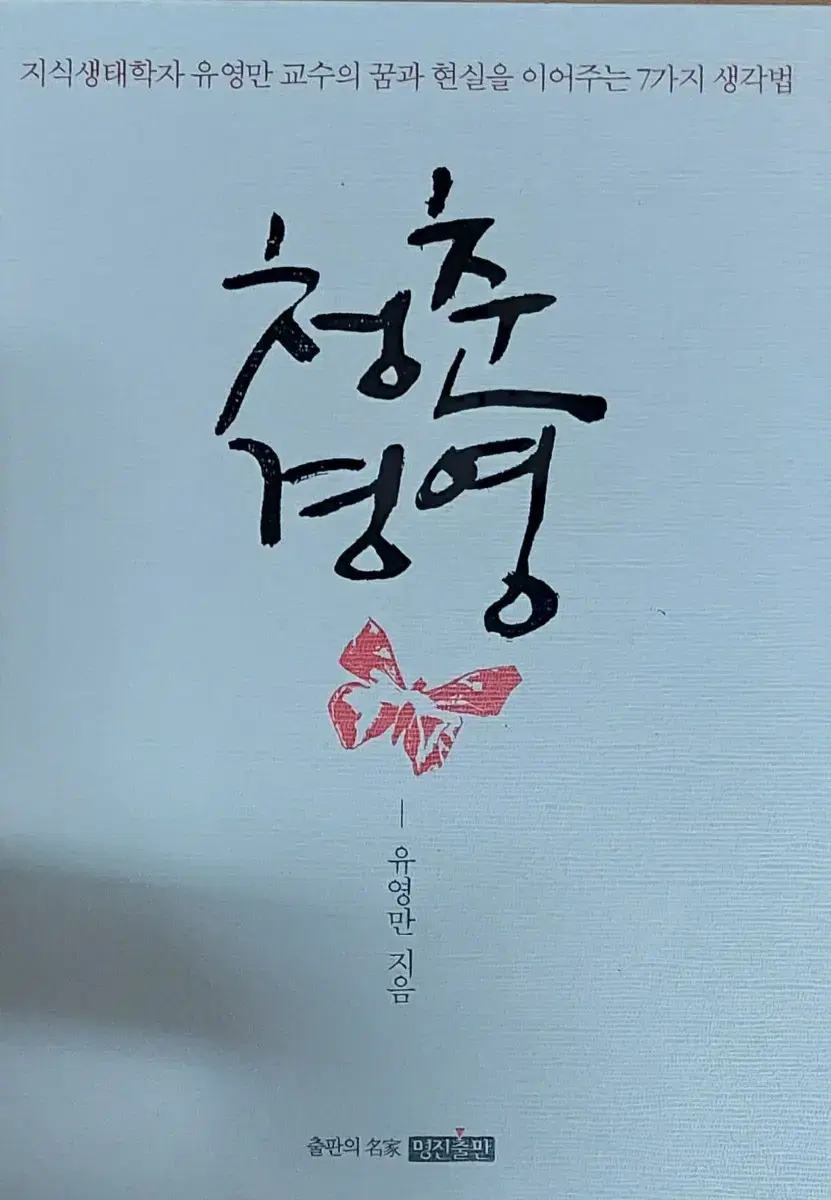 지식생태학자 유영만 교수의 꿈과 현실을 이어주는 7가지 생각법
청춘
경영
유영만 지음
출판의 名家 명진출판